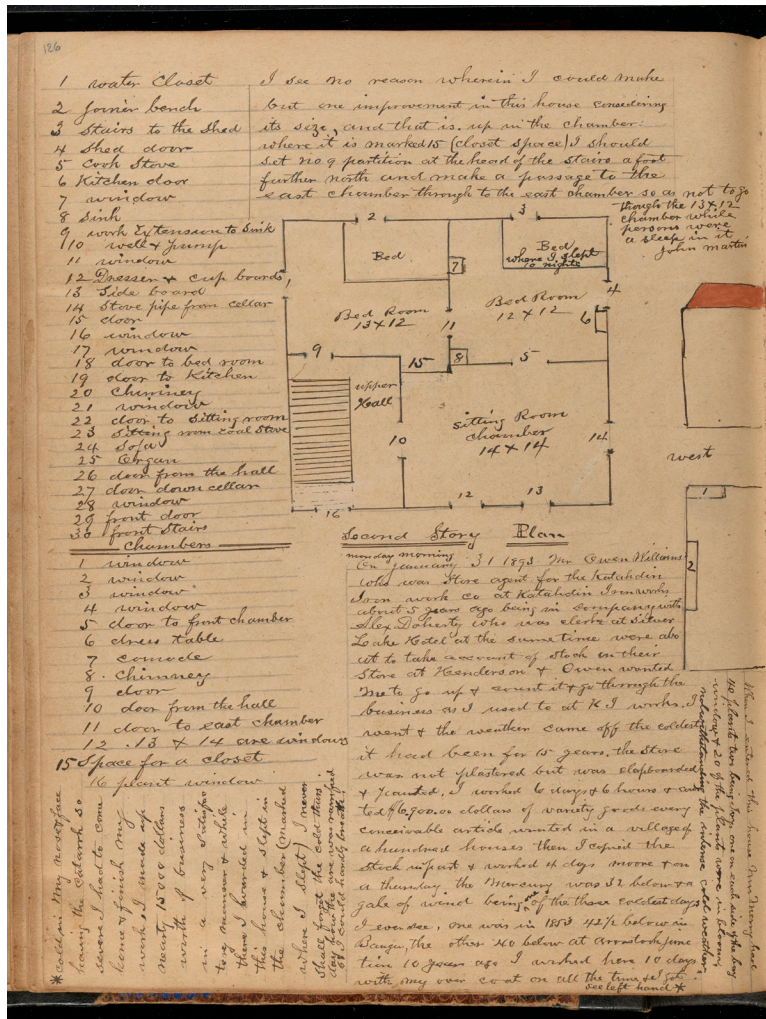 126
1 water Closet
2 Joiner bench
3 Stairs to the Shed
4 Shed door
5 Cook Stove
6 Kitchen door
7 window
8 Sink
9 work Extension to Sink
10 well & pump
11 window
12 Dresser & cup boards,
13 Side board
14 Stove pipe from cellar
15 door
16 window
17 window
18 door to bed room
19 door to Kitchen
20 Chimney
21 window
22 door to Sitting room
23 Sitting room coal Stove
24 Sofa
25 Organ
26 door from the hall
27 door down cellar
28 window
29 front door
30 front Stairs
Chambers
1 window
2 window
3 window
4 window
5 door to front chamber
6 dress table
7 comode
8. Chimney
9 door
10 door from the hall
11 door to east chamber
12. 13 & 14 are windows
15 Space for a closet
16 plant window
I see no reason wherein I could make
but one improvement in this house considering
its size, and that is. up in the chamber.
where it is marked 15 (closet space) I should
set no 9 partition at the head of the stairs a foot
further north and make a passage to the
east chamber through to the east chamber so as not to go
though the 13 x 12
chamber while
persons were
a sleep in it
John Martin
2
3
Bed
7
Bed
where I slept
10 nights
4
Bed Room
13 x 12
Bed Room
12 x 12
6
11
9
15
8
5
upper
Hall
Sitting Room
chamber
14 x 14
10
14
12
13
16
west
1
2
Second Story Plan
monday morning
On January 31 1893 Mr Owen Williams
who was Store agent for the Katahdin
Iron work co at Katahdin Ironworks
about 5 years ago being in company with
Alex Doherty who was clerk at Silver
Lake Hotel at the same time were abo
ut to take account of Stock in their
Store at Henderson & Owen wanted
me to go up & count it & go through the
business as I used to at K I works. I
went & the weather came off the coldest
it had been for 15 years. the Store
was not plastered but was clapboarded
& painted. I worked 6 days & 6 hours &
ted $6,900.00 dollars of variety goods every
conceivable article wanted in a village of
a hundred houses then I copied the
Stock in part & worked 4 days moore & on
a thursday the Mercury was 32 below & a
gale of wind being one of the three coldest days
I ever see, one was in 1853 42½ below in
Bangor, the other 40 below at aroostook junc
tion 10 years ago I worked here 10 days
with my over coat on all the time & I got.
see left hand *
* cold in my nose & face
having the Catarrh so
severe I had to come
home & finish my
work. I made up
nearly 15000 dollars
worth of business
in a very Satisfac
tory manner & while
there I boarded in
this house & slept in
the chamber (marked
where I slept) I never
Shall forget the cold thurs
day how the air was
I could hardly breathe
When I entered this house Mrs Merry had
40 plants two being large one on each side of the bay
window & 20 of the plants were in blossom
notwithstanding the intense cold weather.